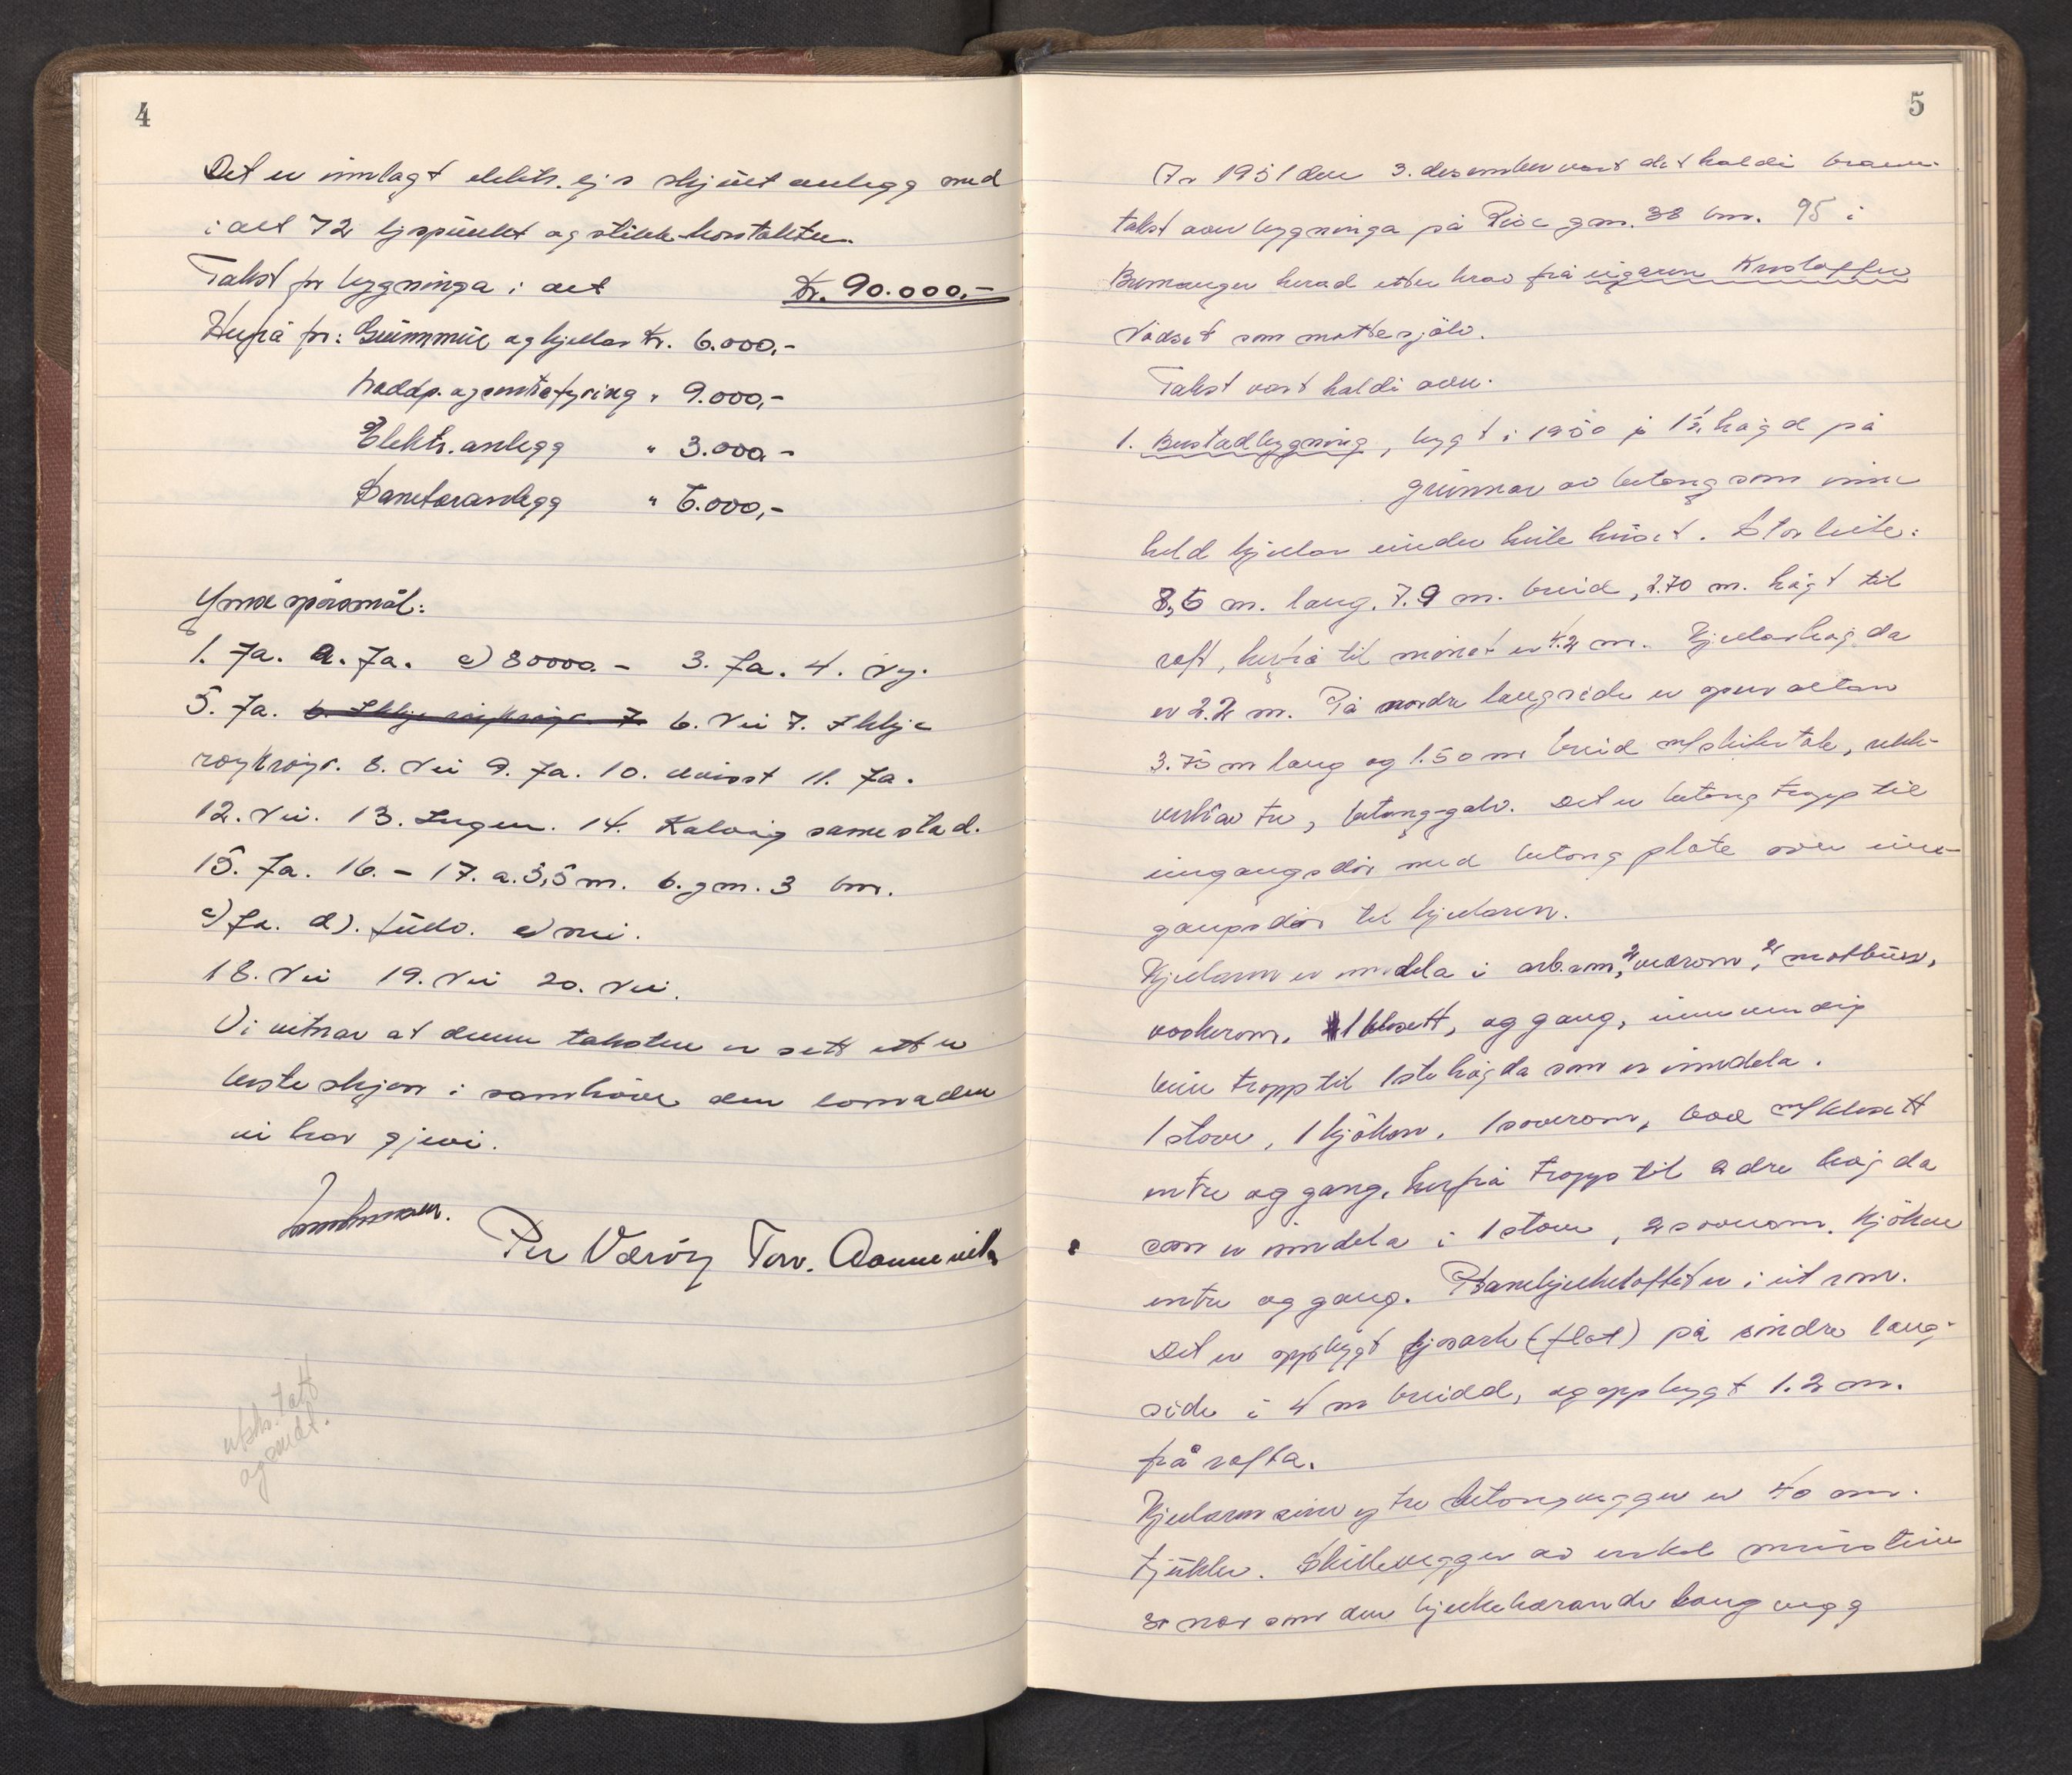 4
Det er innlagt elektr. ljs skjult anlegg med
i alt 72 ljspunkt og stikk-kontakter.
Takst for bygninga i alt Kr. 90.000,-
Herfrå for: Grunnmur og kjellar kr. 6.000,-
Vaddp. og sentralfyring " 9.000,-
Elektr. anlegg " 3.000,-
Sanetæranlegg " 5.000,-
Ymse spørsmål:
1. Ja. 2. Ja. c) 80000.- 3. Ja. 4. Ny.
5. Ja. 6. Nei 7. Ikkje
røykrøyr. 8. Nei 9. Ja. 10. uvisst 11. Ja.
12. Nei. 13. Ingen. 14. Kalvåg same stad.
15. Ja. 16. - 17. a. 3,5 m. b. gnr. 3 bnr.
c) Ja. d). fullv. e) nei.
18. Nei 19. Nei 20. Nei.
Vi vitnar at denne taksten er sett etter
beste skjøn i samhøve den lovnaden
vi har gjevi.
Per Værøy Torv.
utskr. tatt
og sendt.
5
År 1951 den 3. desember vart det haldi brann-
takst over bygninga på gnr. 38 bnr. 95 i
Bremanger herad etter krav frå eigaren Kristoffer
som møtte sjølv.
Takst vart haldi over.
1. Bustadbygning, bygt i 1950 i 1½ høgd på
grunnar av betong som inne
held kjellar under heile huset. Storleik:
8,5 m. lang, 7.9 m. breid, 2.70 m. høgt til
raft, herfrå til mønet er 4.2 m. Kjellarhøgda
er 2.2 m. På nordre langside er open altan
3.75 m lang og 1.50 m breid m/skifertak, rekk-
verk av tre, betong-golv. Det er betong tropp til
inngangsdør med betong plate over inn-
gangsdør til kjellaren.
Kjellaren er inndela i arb.rom, 2 vedrom, 2 matbuer,
vaskerom, 1 klosett, og gang, innvendig
bein tropp til 1ste høgda som er inndela.
1 stove, 1 kjøken, 1 soverom, bad m/klosett
entre og gang, herfrå tropp til 2dre høgda
som er inndela i 1 stove, 2 soverom, kjøken
entre og gang. Hanebjelkeloftet er i eit rom.
Det er oppbygt ljosark (flat) på søndre lang-
side i 4 m breidd, og oppbygt 1.2 m.
frå rafta.
Kjellaren sine ytre betongvegger er 40 cm.
tjukke. Skillevegger av enkel murstein
so nær som den bjelkebærande langvegg